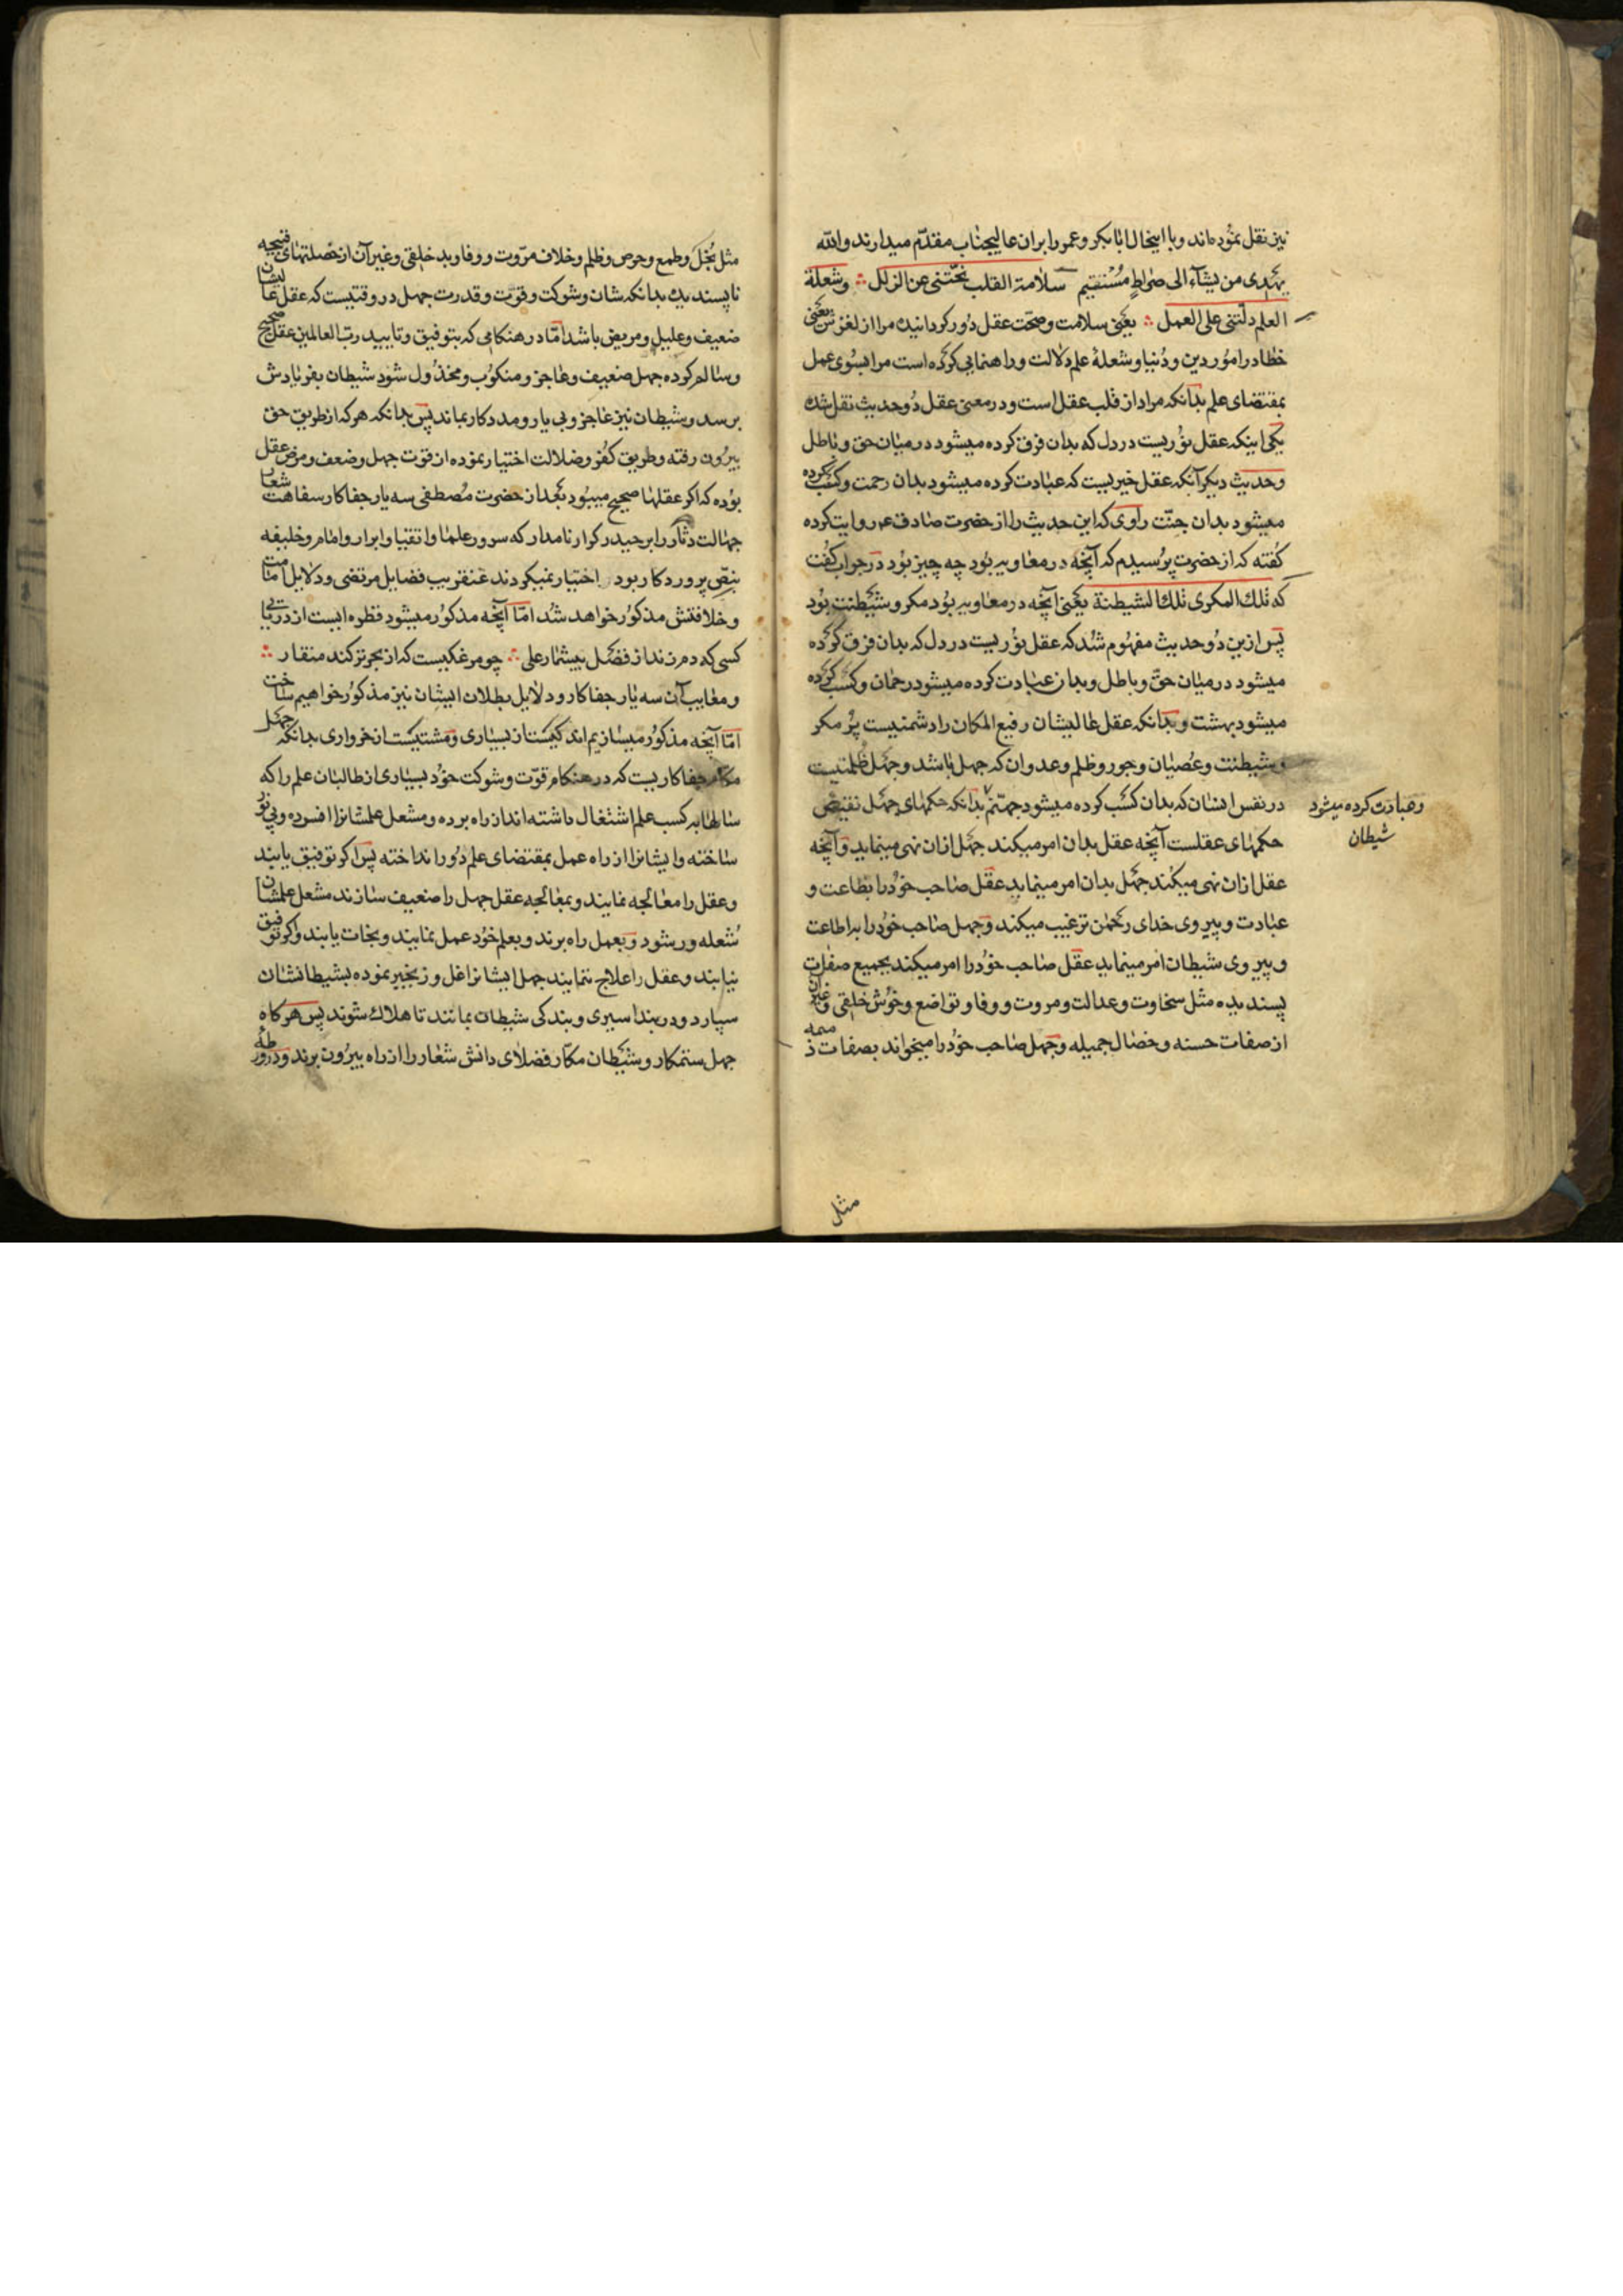 نیز نقل نموده‌اند و با اینحال ابابکر و عمر را بران عالیجناب مقدّم میدارند والله
یهدی من یشآء الی صراطٍ مُستقیم سلامة القلب نحّتنی عن الزلل وشعلة
العلم دلّتنی علی العمل یعنی سلامت و صحّت عقل دُور کردانیده مرا از لغزش یعنی
خطا در امُور دین و دُنیا و شعلهٔ علم دلالت و راهنمایی کرده است مرا بسُوی عمل
بمقتضای علم بدانکه مراد از قلب عقل است و در معنی عقل دُو حدیث نقل شده
یکی اینکه عقل نوُریست در دل که بدان فرق کرده میشود در میان حق و باطل
و حدیث دیکر آنکه عقل خیریست که عبادت کرده میشود بدان رحمت و کسب کرده
میشود بدان جنّت راوی که این حدیث را از حضرت صادق ع روایت کرده
کفته که از حضرت پرُسیدم که آنچه در معاویه بوُد چه چیز بوُد در جواب کفُت
که تلک المکری تلک الشیطنة یعنی آنچه در معاویه بوُد مکر و شیطنت بوُد
پس ازین دُو حدیث مفهُوم شُد که عقل نوُریست در دل که بدان فرق کرده
میشود در میان حقّ و باطل و بدان عبادت کرده میشود رحمان و کسب کرده
میشود بهشت و بدانکه عقل عالیشان رفیع المکان را دشمنیست پرُ مکر
و شیطنت و عُصیان و جور و ظلم و عدوان که جهل باشد و جهل ظلمتیست
در نفس انسان که بدان کسب کرده میشود جهنّم بدانکه حکمهای جهل نقیض
و عبادت کرده میشود
شیطان
حکمهای عقلست آنچه عقل بدان امر میکند جهل ازان نهی مینماید و آنچه
عقل ازان نهی میکند جهل بدان امر مینماید عقل صاحب خوُد را بطاعت و
عبادت و پیروی خدای رحمن ترغیب میکند و جهل صاحب خوُد را براطاعت
و پیروی شیطان امر مینماید عقل صاحب خوُد را امر میکند بجمیع صفات
پسندیده مثل سخاوت و عدالت و مروت و وفا و تواضع و خوُش خلقی و غیرآن
از صفات حسنه و خصال جمیله و جهل صاحب خوُد را میخواند بصفات ذمیمه
مثل
مثل بُخل و طمع و حرص و ظلم و خلاف مرّوت و وفا و بد خلقی و غیر آن از خصلتهای قبیحه
ناپسندیده بدانکه شان و شوکت و قوّت و قدرت جهل در وقتیست که عقل عالیشان
ضعیف و علیل و مریض باشد امّا در هنکامی که بتوفیق و تایید ربّ العالمین عقل صحیح
و سالم کرده جهل ضعیف و عاجز و منکوُب و مخذوُل شود شیطان بفریادش
برسد و شیطان نیز عاجز و بی یار و مددکار بماند پس بدانکه هر که از طریق حق
بیرُون رفته و طریق کفُر و ضلالت اختیار نموده از قوّت جهل و ضعف و مرض عقل
بوُده که اکر عقلها صحیح میبوُد بعد از حضرت مُصطفی سه یار جفاکار سفاهت شعار
جهالت دثار را بر حیدر کرار نامدار که سرور علما و اتقیا و ابرار و امام و خلیفه
بنصّ پروردکار بود اختیار نمیکردند عنقریب فضایل مرتضی و دلایل امامت
و خلافتش مذکوُر خواهد شُد امّا آنچه مذکوُر میشود قطره ایست از دریایی
کسی که دم زند از فضل بیشمار علی چو مرغکیست که از بحر تر کند منقار
و معایب آن سه یار جفاکار و دلایل بطلان ایشان نیز مذکوُر خواهیم ساخت
امّا آنچه مذکوُر میسازیم اندکیست از بسیاری و مشتیست از خرواری بدانکه جهل
مکار جفاکاریست که در هنکام قوّت و شوکت خوُد بسیاری از طالبان علم را که
سالها به کسب علم اشتغال داشته اند از راه برده و مشعل علمشانرا افسرده و بی نور
ساخته و ایشانرا از راه عمل بمقتضای علم دوُر انداخته پس اکر توفیق یابند
و عقل را معالجه نمایند و بمعالجه عقل جهل را ضعیف سازند مشعل علمشان
شُعله ور شود و بعمل راه برند و بعلم خوُد عمل نمایند و نجات یابند و اکر توفیق
نیابند و عقل را علاج ننمایند جهل ایشانرا غل و زنجیر نموده بشیطانشان
سپارد و در بند اسیری و بندکی شیطان بمانند تا هلاک شوند پس هرکاه
جهل ستمکار و شیطان مکّار فضلای دانش شعار را از راه بیروُن برند و در ورطهٔ